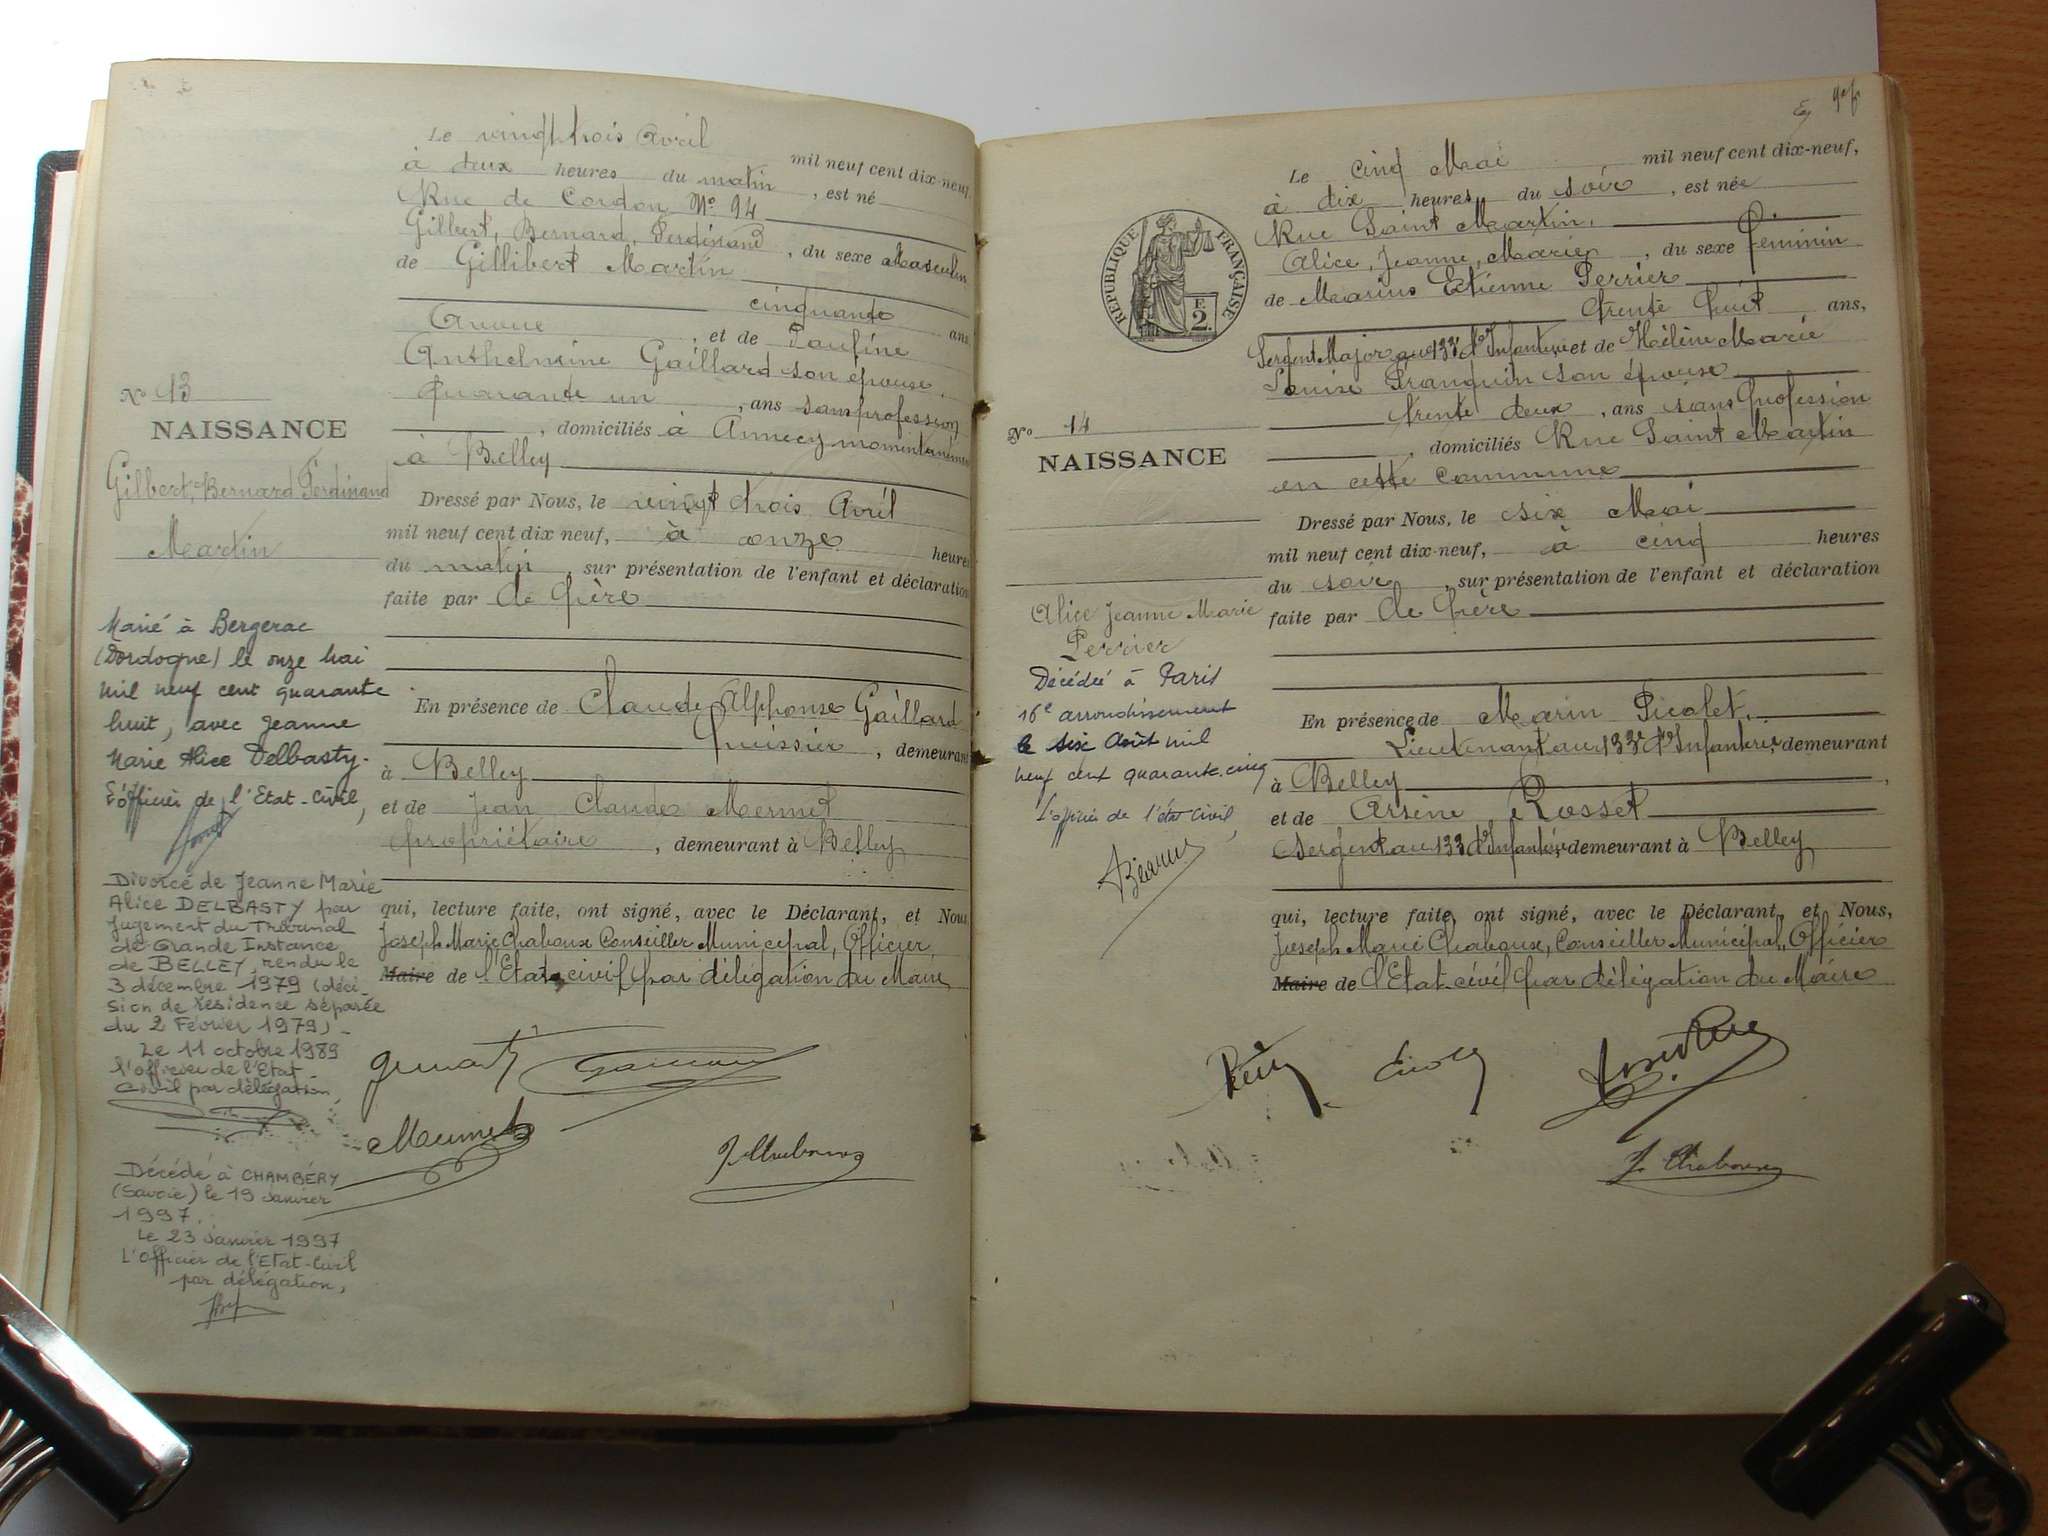 Le vingt trois Avril mil neuf cent dix-neuf,
à deux heures du matin, est né
Rue de Cordon No. 94
Gilbert, Bernard, Ferdinand, du sexe Masculin
de Gillibert Martin
cinquante ans
Avoué, et de Pauline
Anthelmine Gaillard son épouse,
quarante un, ans sans profession
, domiciliés à Annecy momentanément
à Belley
No 13
NAISSANCE
Gilbert, Bernard Ferdinand
Martin
Dressé par Nous, le vingt trois Avril
mil neuf cent dix neuf, à onze heures
du matin, sur présentation de l'enfant et déclaration
faite par le père
Marié à Bergerac
(Dordogne) le onze mai
mil neuf cent quarante
huit, avec Jeanne
Marie Alice Delbasty.
L'officier de l'Etat-Civil,
En présence de Claude Alphonse Gaillard
huissier, demeurant
à Belley
et de Jean Claude Mermet
propriétaire, demeurant à Belley
Divorcé de Jeanne Marie
Alice DELBASTY par
jugement du Tribunal
de Grande Instance
de BELLEY, rendu le
3 décembre 1979 (déci-
sion de résidence séparée
du 2 Février 1979) -
Le 11 octobre 1989
l'officier de l'Etat
Civil par délégation,
qui, lecture faite, ont signé, avec le Déclarant, et Nous,
Joseph Marie Chaboux Conseiller Municipal, Officier
Maire de l'Etat civil par délégation du Maire
Gaillard
Mermet
J. Chaboux
Décédé à CHAMBÉRY
(Savoie) le 19 Janvier
1997.
Le 23 Janvier 1997
L'Officier de l'Etat-Civil
par délégation,
Le cinq Mai mil neuf cent dix-neuf,
à dix heures du soir, est née
Rue Saint Martin,
Alice, Jeanne, Marie, du sexe féminin
de Marius Etienne Perrier
trente huit ans,
Sergent Major au 133e d'Infanterie et de Hélène Marie
Louise Franquin son épouse
trente deux, ans sans profession
, domiciliés Rue Saint Martin
en cette commune
RÉPUBLIQUE FRANÇAISE
F.
2.
No 14
NAISSANCE
Alice Jeanne Marie
Perrier
Décédée à Paris
16e arrondissement
le six Août mil
neuf cent quarante-cinq
L'officier de l'état civil,
Dressé par Nous, le six Mai
mil neuf cent dix-neuf, à cinq heures
du soir, sur présentation de l'enfant et déclaration
faite par le père
En présence de Marin Picolet,
Lieutenant au 133e d'Infanterie, demeurant
à Belley,
et de Arsène Rosset
Sergent au 133 d'Infanterie, demeurant à Belley
qui, lecture faite, ont signé, avec le Déclarant, et Nous,
Joseph Marie Chaboux, Conseiller Municipal, Officier
Maire de l'Etat-civil par délégation du Maire
J. Chaboux